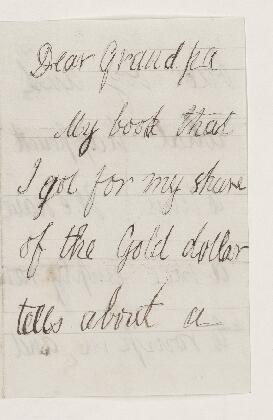 Dear Grandpa
My book that
I got for my share
of the Gold dollar
tells about a